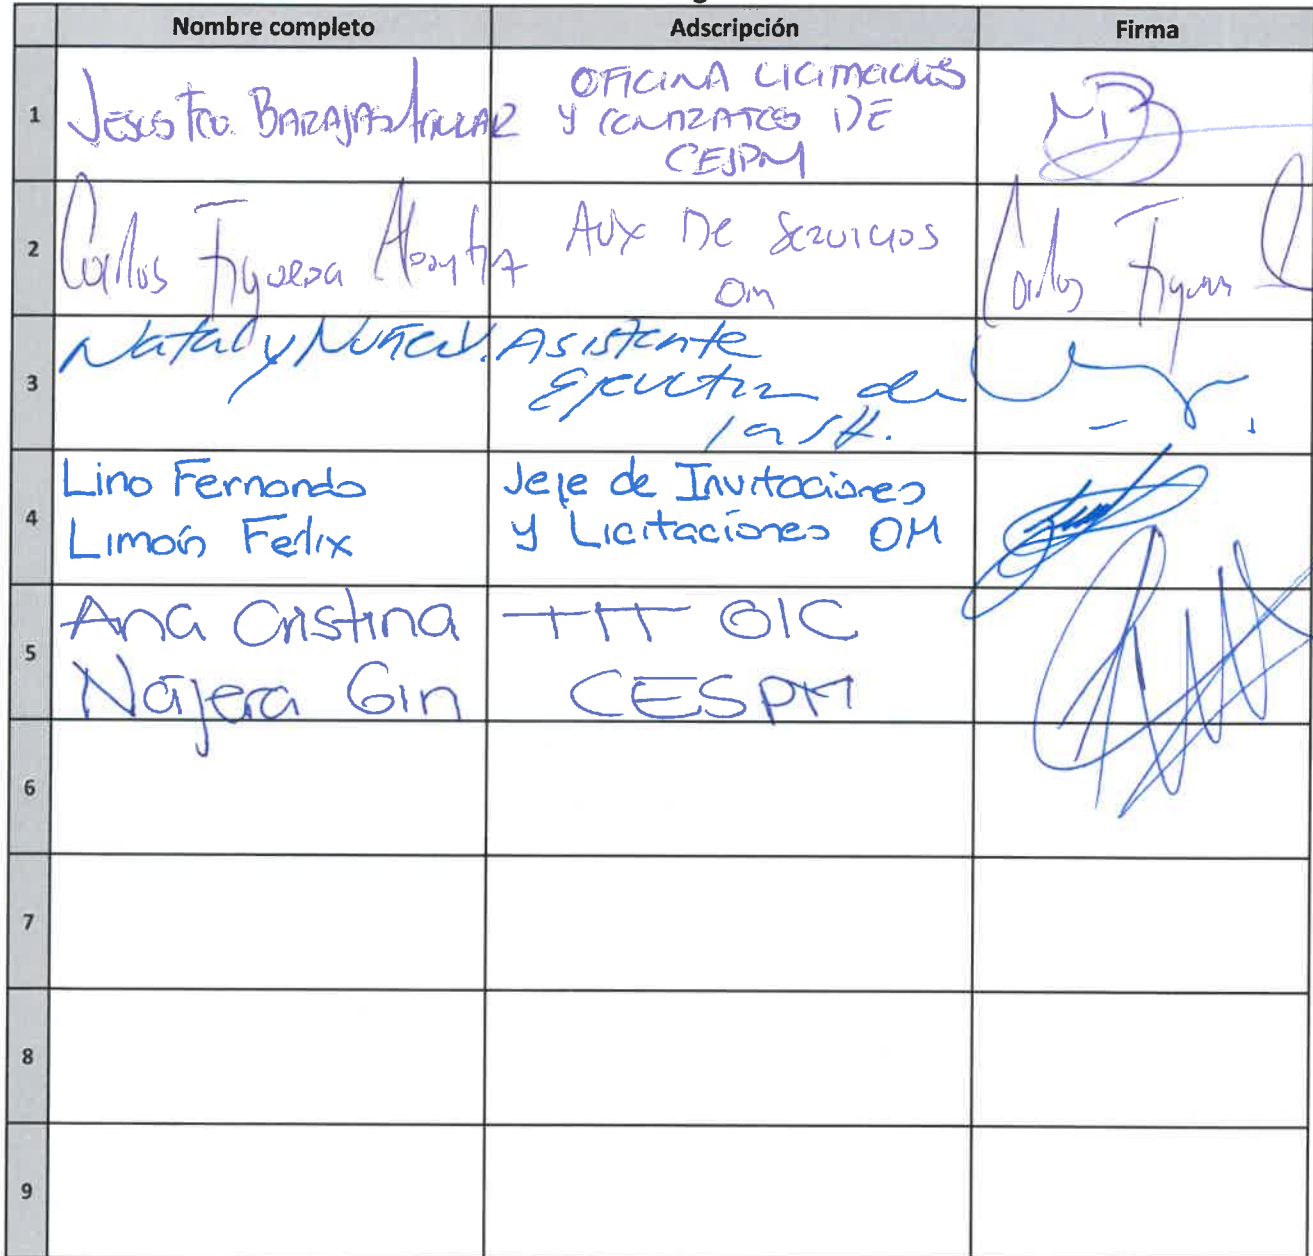 Nombre completo Adscripción Firma
1 JESUS FCO. BARAJAS OFICINA LICITACIONES
Y CONTRATOS DE
CESPM
2 Carlos Figueroa AUX De Servicios
OM Carlos Figueroa
3 Nataly Nuñez V. Asistente
Ejecutiva de
la
4 Lino Fernando
Limón Felix Jefe de Invitaciones
y Licitaciones OM
5 Ana Cristina
Nájera Gin TIT OIC
CESPM
6
7
8
9